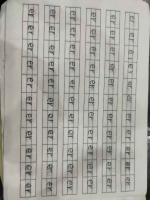 er er er er er er
er er er er er er
er er er er er er
er er er er er er
er er er er er er
er er er er er er
er er er er er er
er er er er er er
er er er er er er
er er er er er er
er er er er er er
er er er er er er